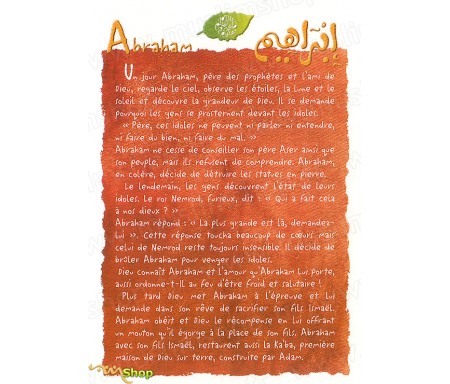 Abraham إبراهيم
Un jour Abraham, père des prophètes et l'ami de
Dieu, regarde le ciel, observe les étoiles, la lune et le
soleil et découvre la grandeur de Dieu. Il se demande
pourquoi les gens se prosternent devant les idoles.
« Père, ces idoles ne peuvent ni parler ni entendre,
ni faire du bien, ni faire du mal. »
Abraham ne cesse de conseiller son père Aser ainsi que
son peuple, mais ils refusent de comprendre. Abraham,
en colère, décide de détruire les statues en pierre.
Le lendemain, les gens découvrent l'état de leurs
idoles. Le roi Nemrod, furieux, dit : « Qui a fait cela
à nos dieux ? »
Abraham répond : « La plus grande est là, demandez-
lui ». Cette réponse toucha beaucoup de cœurs mais
celui de Nemrod reste toujours insensible. Il décide de
brûler Abraham pour venger les idoles.
Dieu connaît Abraham et l'amour qu'Abraham Lui porte,
aussi ordonne-t-Il au feu d'être froid et salutaire !
Plus tard Dieu met Abraham à l'épreuve et lui
demande dans son rêve de sacrifier son fils Ismaël.
Abraham obéit et Dieu le récompense en lui offrant
un mouton qu'il égorge à la place de son fils. Abraham
avec son fils Ismaël, restaurent aussi la Ka'ba, première
maison de Dieu sur terre, construite par Adam.
Shop